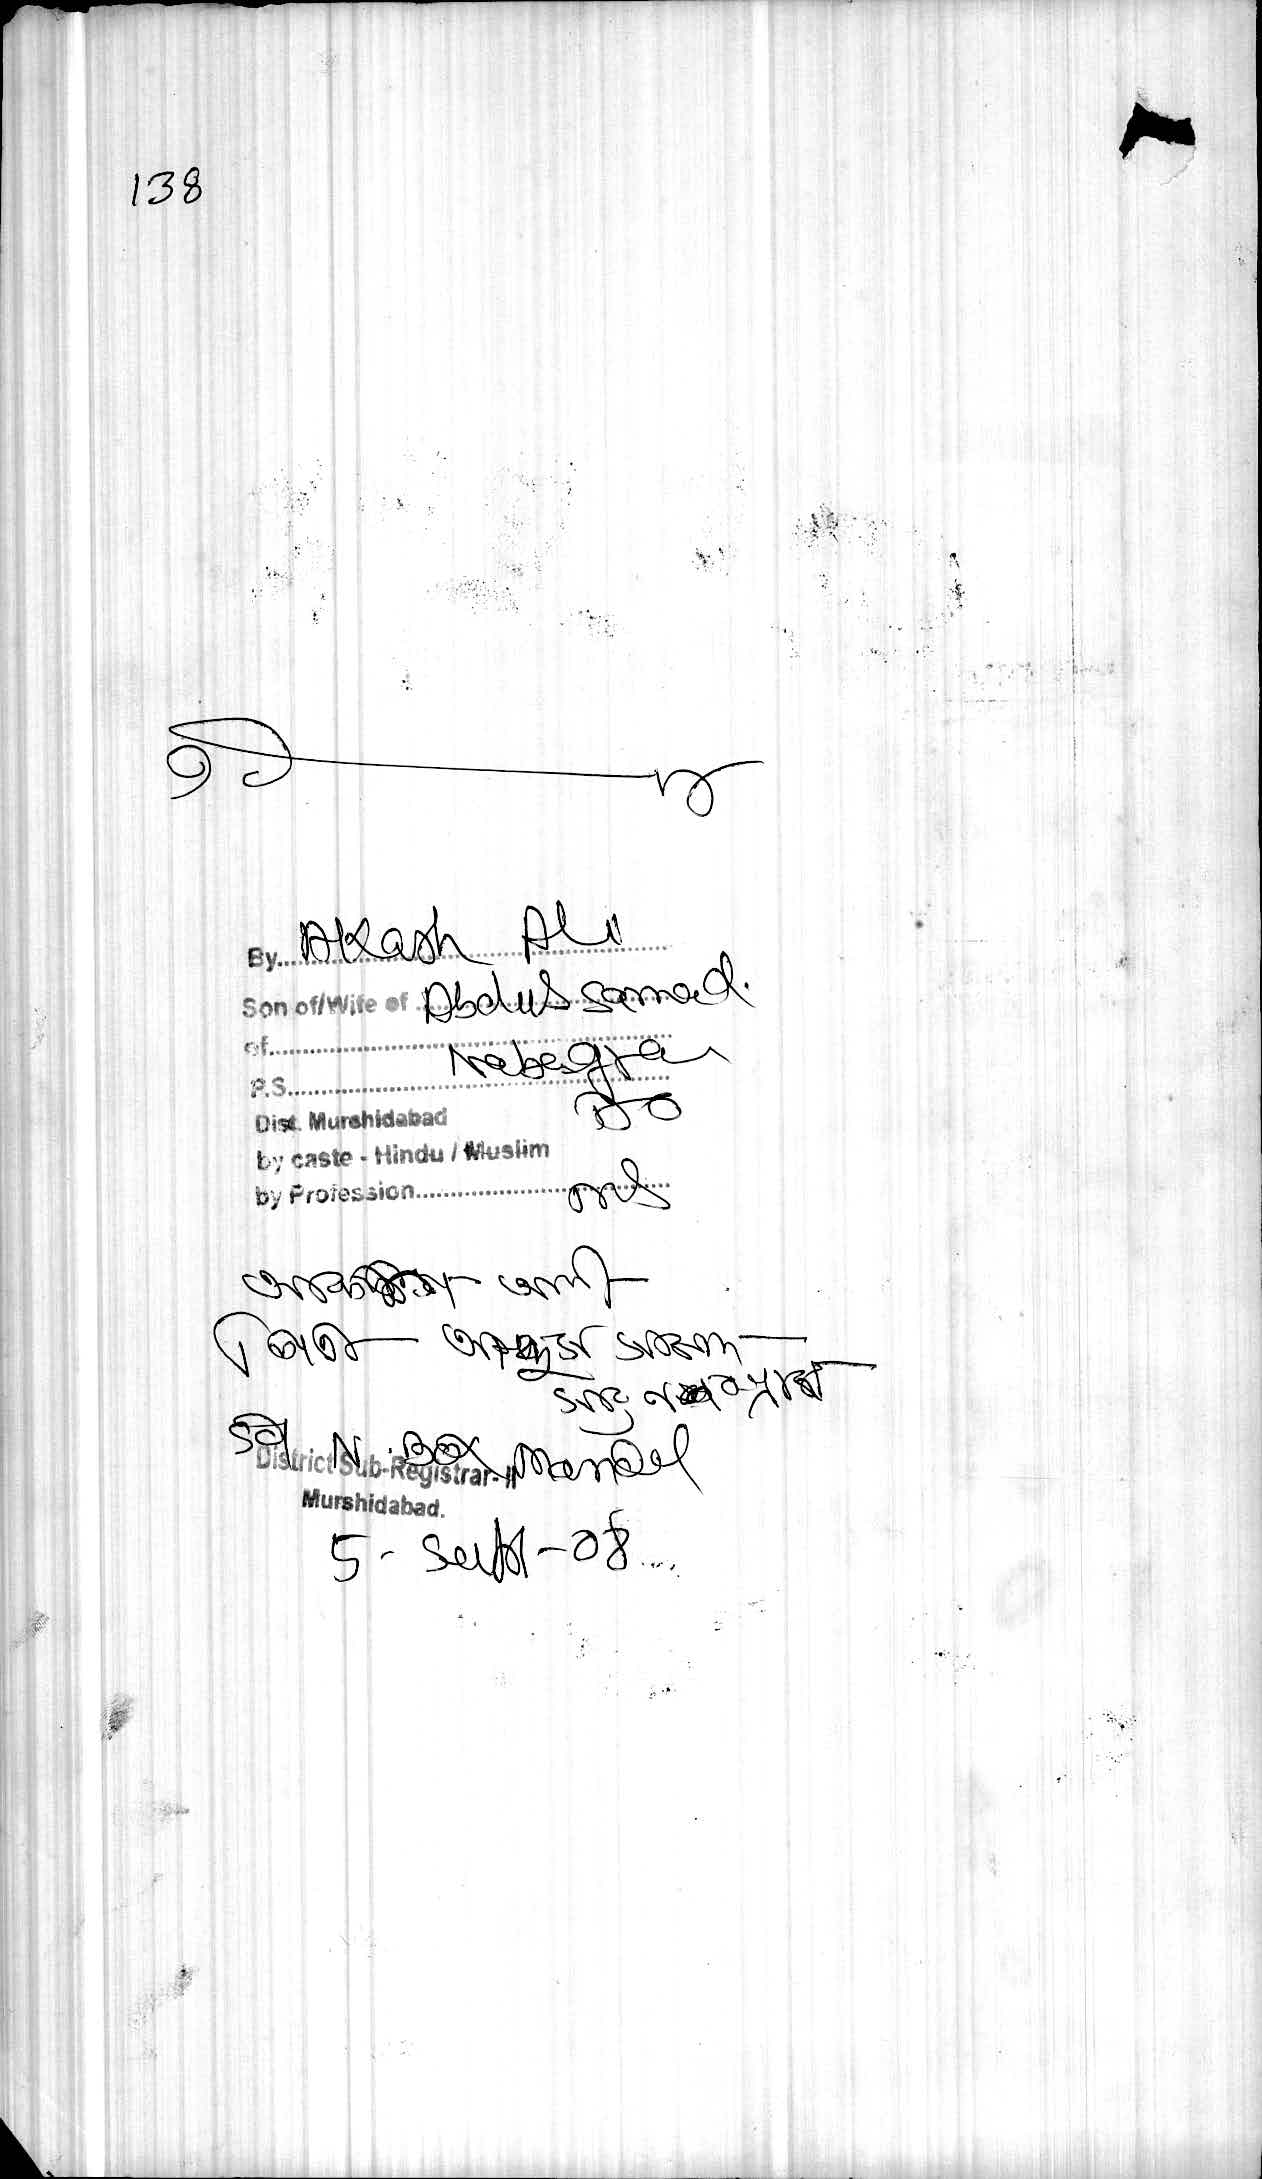 138
By.... Akash Ali
Son of/Wife of Abdus samad.
of.... Nabagram
P.S.... Do
Dist. Murshidabad
by caste - Hindu / Muslim
by Profession....
আকাশ আলী
পিতা আব্দুস সামাদ
সাং নবগ্রাম
N. Box Mandal
District Sub-Registrar-II
Murshidabad.
5 - Sept - 08